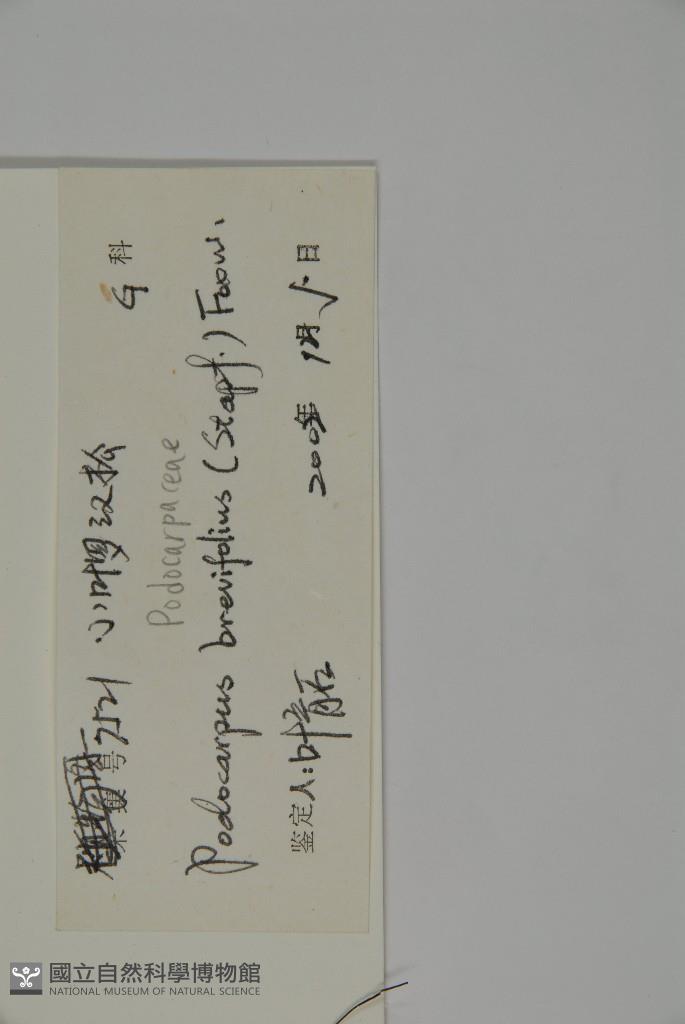 号 7521 小叶罗汉松 G 科
Podocarpaceae
Podocarpus brevifolius (Stapf.) Foxw.
鉴定人: 叶 年 1月 日
國立自然科學博物館
NATIONAL MUSEUM OF NATURAL SCIENCE